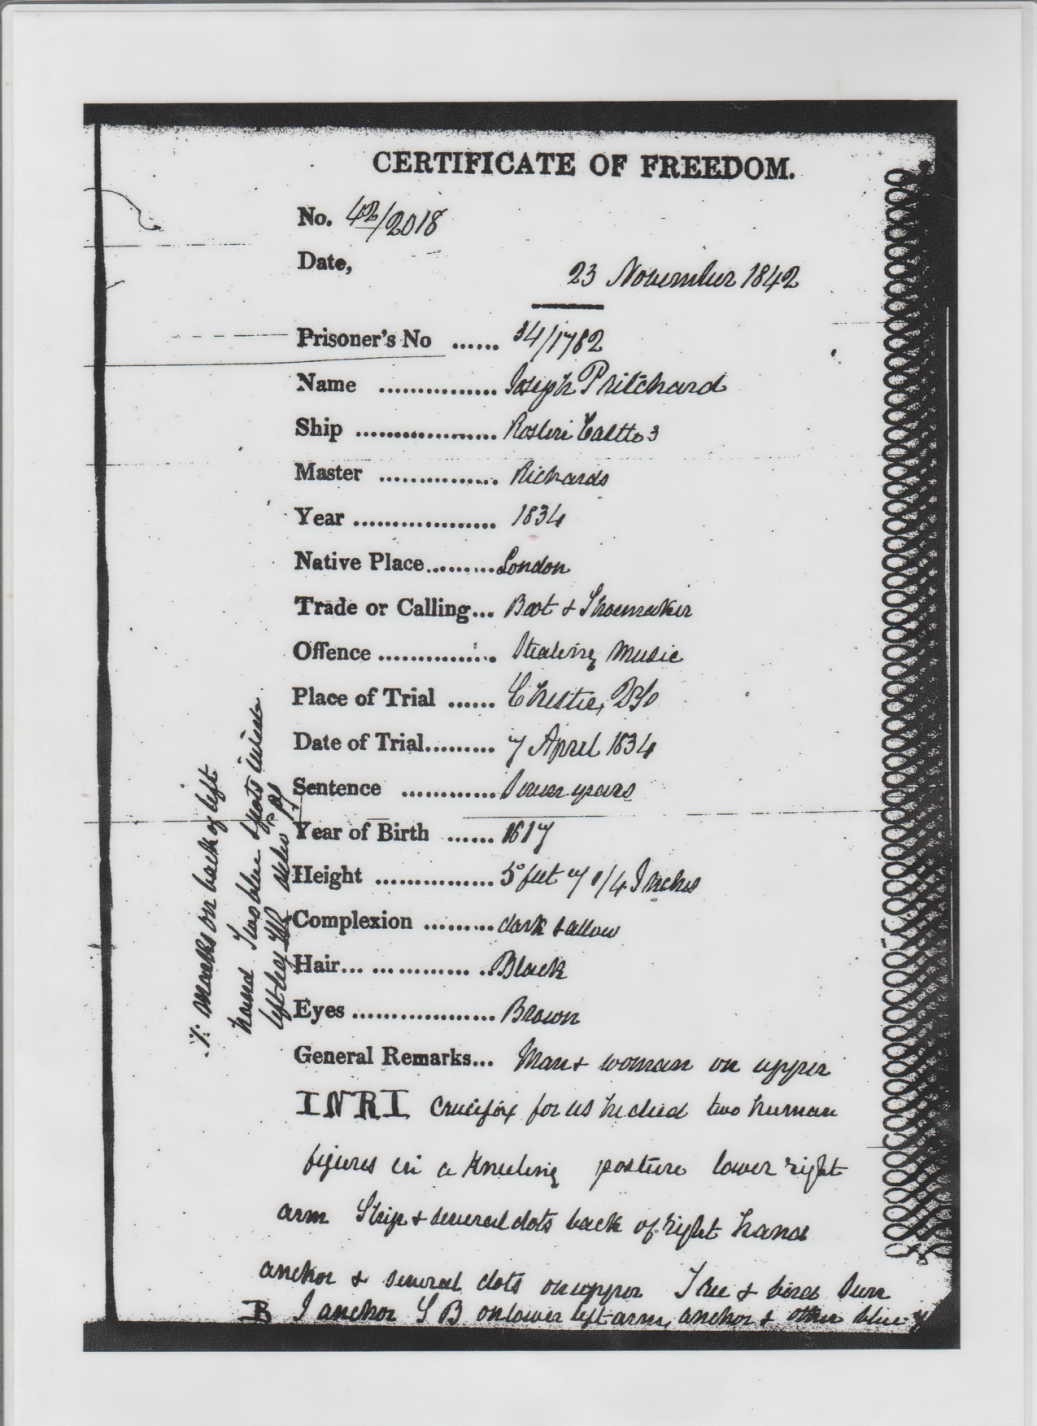 CERTIFICATE OF FREEDOM.
No. 42/2018
Date, 23 November 1842
Prisoner's No ...... 34/1782
Name ............... Joseph Pritchard
Ship .................. Roslin Castle 3
Master ............... Richards
Year ................... 1834
Native Place......... London
Trade or Calling... Boot & Shoemaker
Offence .............. Stealing Music
Place of Trial ...... Chester
Date of Trial......... 7 April 1834
Sentence ............ Seven years
Year of Birth ...... 1817
Height ............... 5 feet 7 1/4 Inches
Complexion ......... dark sallow
Hair... ... ............ .. Black
Eyes ................... Brown
General Remarks... Man & woman on upper
INRI Crucifix for us he died two human
figures in a kneeling posture lower right
arm Ship & several dots back of right hand
anchor & several dots on upper Tree & bird Sun
B I anchor S B on lower left arm, anchor & other blue
marks on back of left
hand Two blue spots inside
left leg